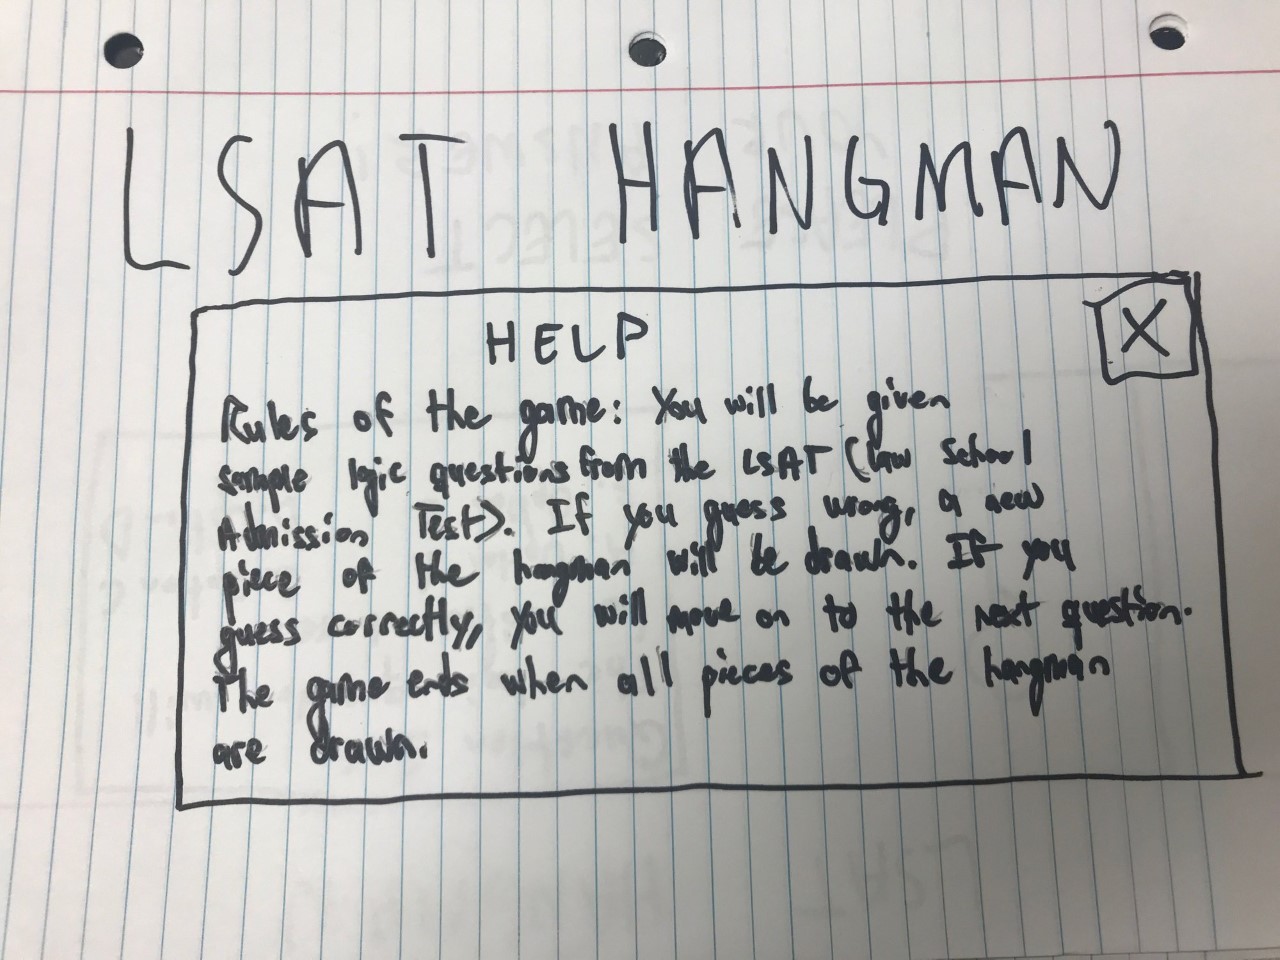 LSAT HANGMAN
HELP
X
Rules of the game: You will be given
sample logic questions from the LSAT (Law School
Admission Test). If you guess wrong, a new
piece of the hangman will be drawn. If you
guess correctly, you will move on to the next question.
The game ends when all pieces of the hangman
are drawn.